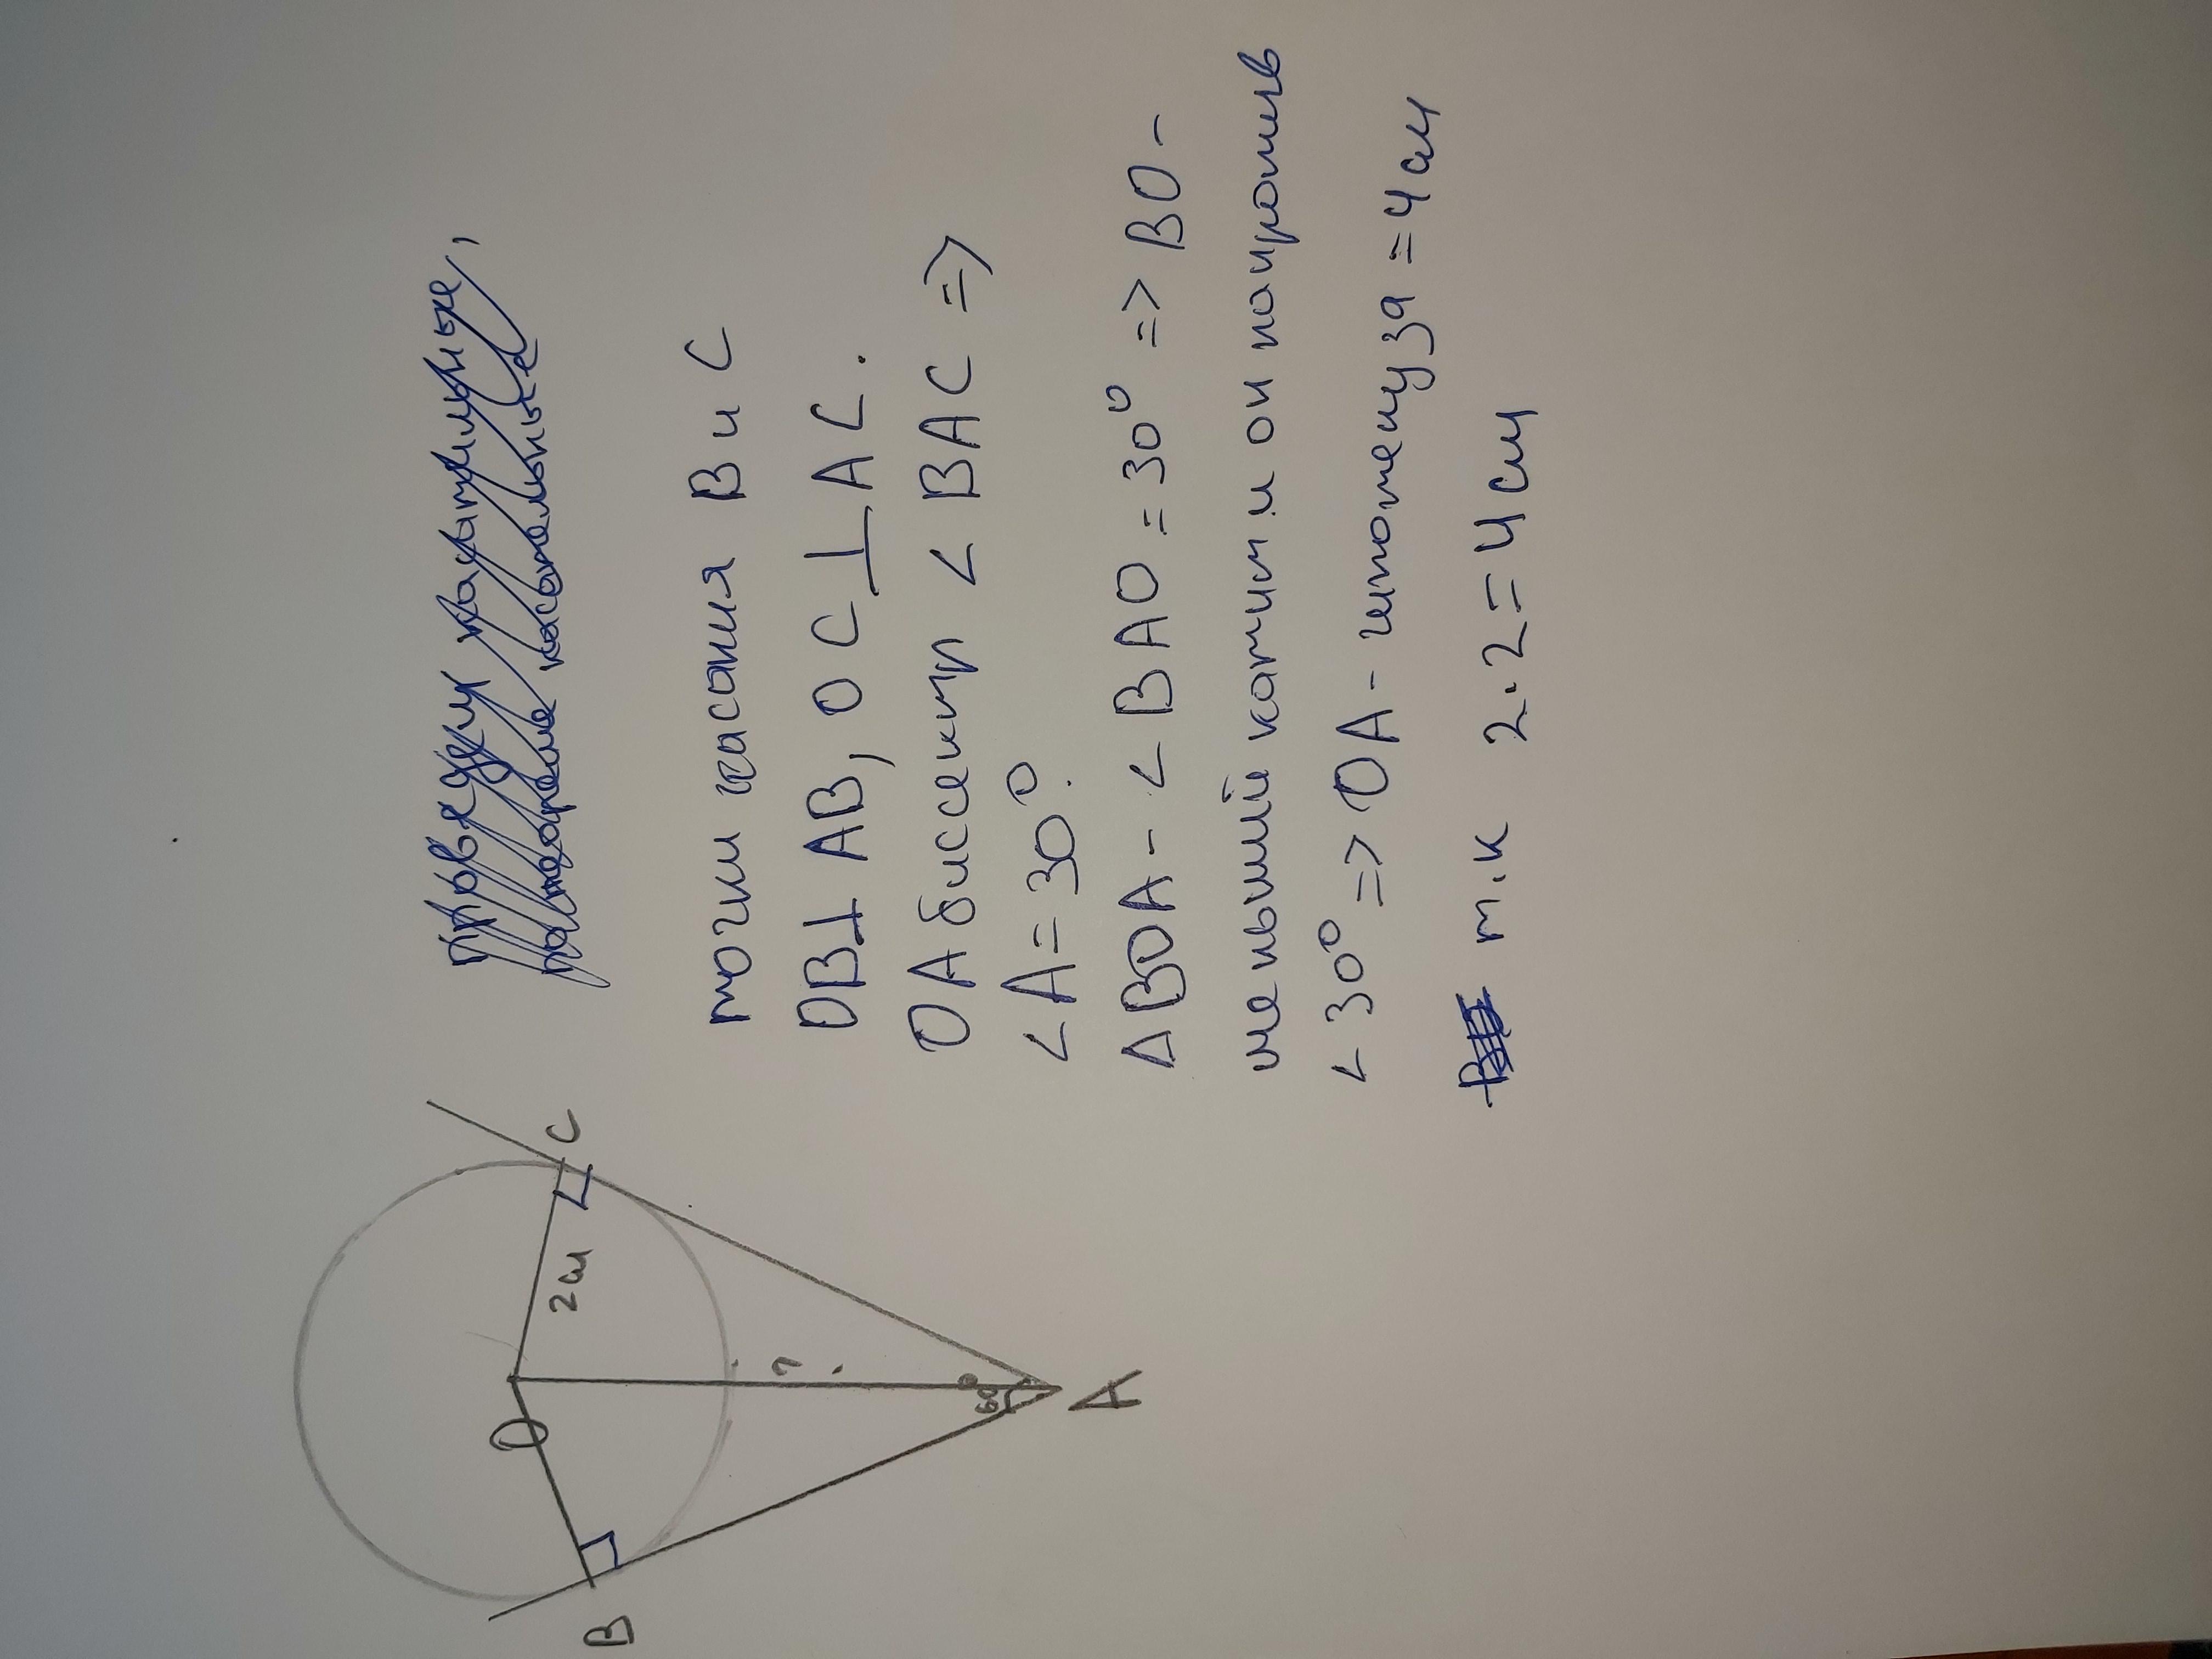 Проведем касательные,
точки касания B и C
OB⊥AB, OC⊥AC.
OA биссектр ∠BAC =>
∠A=30°.
ΔBOA - ∠BAO=30° => BO-
меньший катит и он напротив
∠30° => OA - гипотенуза = 4см
т.к 2·2=4см
O
B
C
2см
?
60°
A